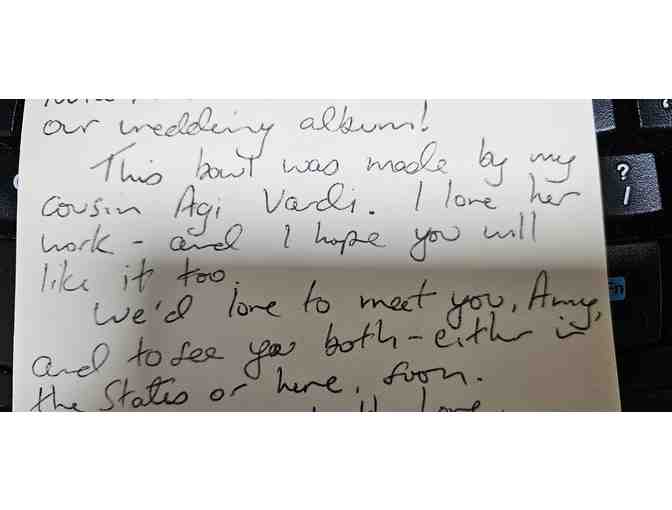 our wedding album!
This bowl was made by my
cousin Agi Vardi. I love her
work - and I hope you will
like it too.
We'd love to meet you, Amy,
and to see you both - either in
the States or here, soon.
love
?
/